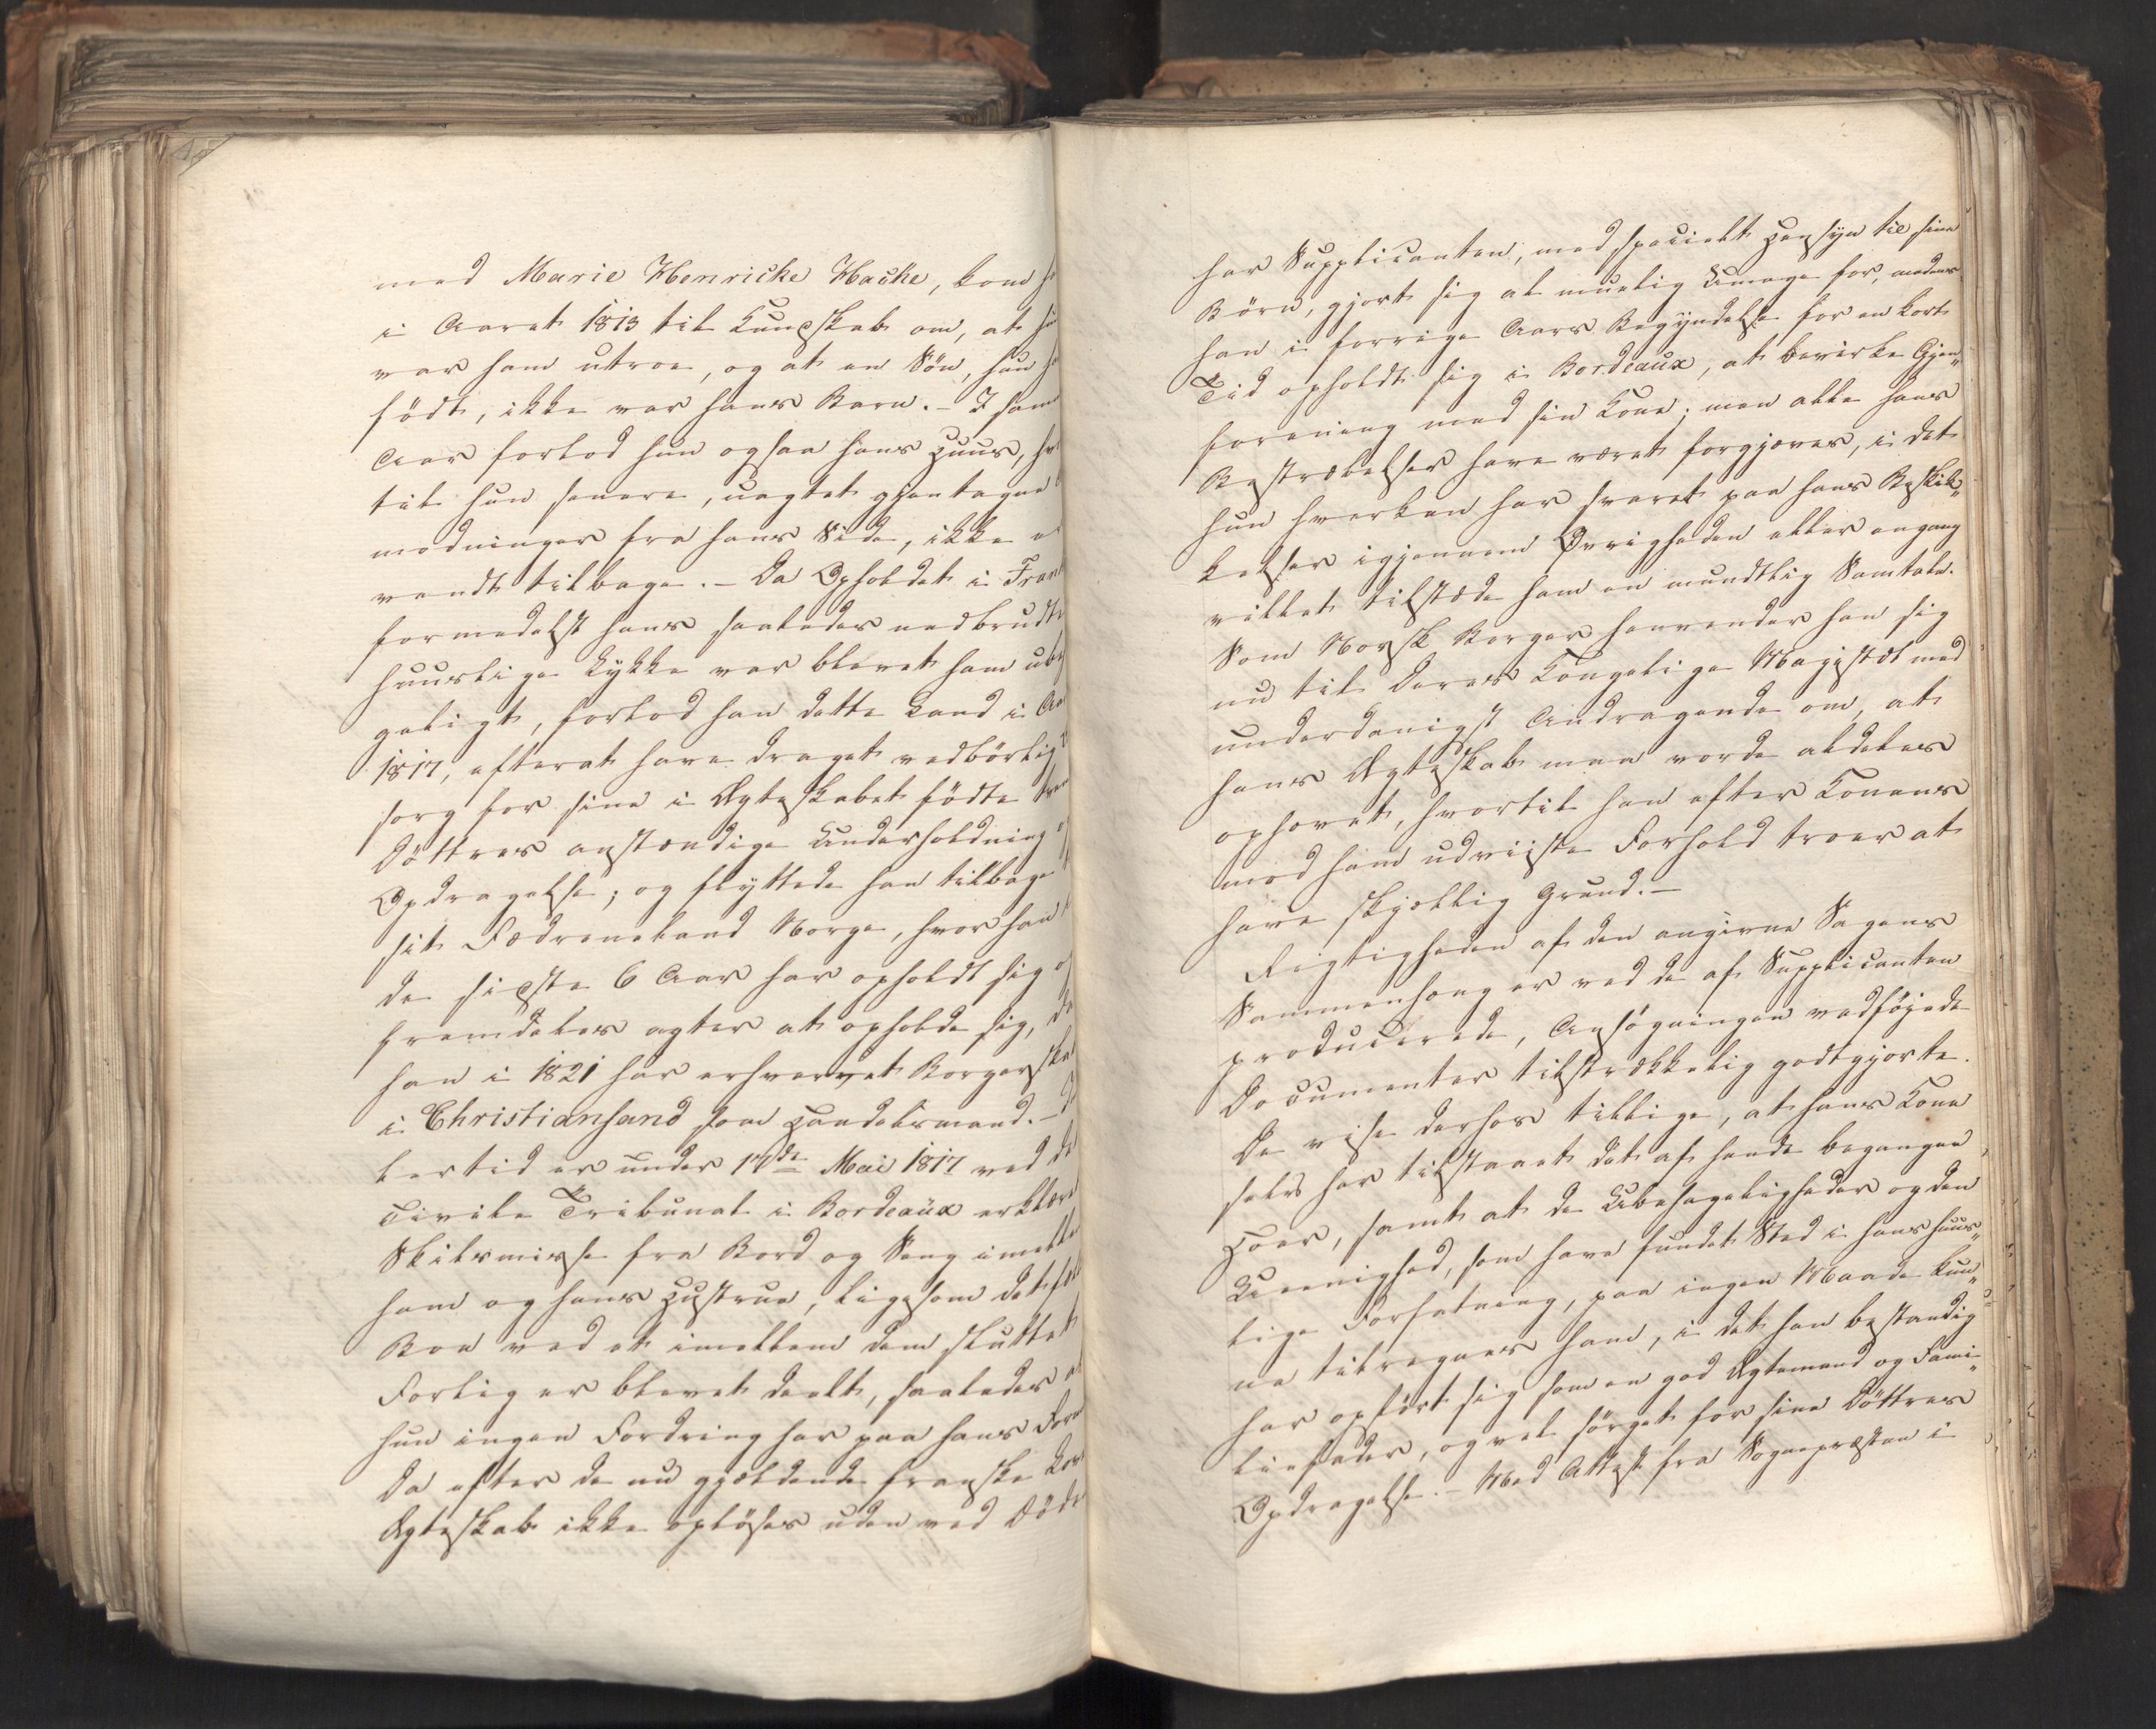 med Marie Henricke Hacke, kom
i Aaret 1813 til Kundskab om, at
var ham utroe, og at en Søn, hun
født, ikke var hans Barn. - I sam
Aar forlod hun ogsaa hans Huus,
til hun senere, uagtet gjentagne
modninger fra hans Side, ikke
vendt tilbage. - Da Opholdet i Frank
formedelst hans saaledes nedbrudte
huuslige Lykke var blevet ham ube
geligt, forlod han dette Land i Aa
1817, efterat have draget vedbørlig
sorg for sine i Ægteskabet fødte
Døttres anstændige Underholdning
Opdragelse; og flyttede han tilbage
sit Fædreneland Norge, hvor han
de sidste 6 Aar har opholdt sig
fremdeles agter at opholde sig,
han i 1821 har erhvervet Borgerskab
i Christiansand som Handelsmand. -
lertid er under 17de Mai 1817 ved
Civile Tribunal i Bordeaux erklære
Skilsmisse fra Bord og Seng imelle
ham og hans Hustrue, ligesom det
Boe ved et imellem dem sluttet
Forlig er blevet deelt, saaledes
hun ingen Fordring har paa hans
Da efter de nu gjældende franske
Ægteskab ikke opløses uden ved Døde
har Supplicanten, med specielt Hensyn til sine
Børn, gjort sig al muelig Umage for, medens
han i forrige Aars Begyndelse for en kort
Tid opholdt sig i Bordeaux, at bevirke Gjen„
forening med sin Kone; men alle hans
Bestræbelser have været forgjæves, i det
hun hverken har svaret paa hans Beskik„
kelser igjennem Øvrigheden eller engang
villet tilstæde ham en mundtlig Samtale.
Som Norsk Borger henvender han sig
nu til Deres Kongelige Majestæt med
underdanigst Andragende om, at
hans Ægteskab maa vorde aldeles
ophævet, hvortil han efter Konens
mod ham udviiste Forhold troer at
have skjællig Grund. -
Rigtigheden af den angivne Sagens
Sammenhæng er ved de af Supplicanten
producerede, Ansøgningen vedføjede
Documenter tilstrækkelig godtgjorte.
De vise derhos tillige, at hans Kone
selv har tilstaaet det af hende begangne
Hoer, samt at de Ubehageligheder og den
Uenighed, som have fundet Sted i hans huus„
lige Forfatning, paa ingen Maade kun„
ne tilregnes ham, i det han bestandig
har opført sig som en god Ægtemand og Fami„
liefader, og vel sørget for sine Døttres
Opdragelse. - Med Attest fra Sognepræsten i